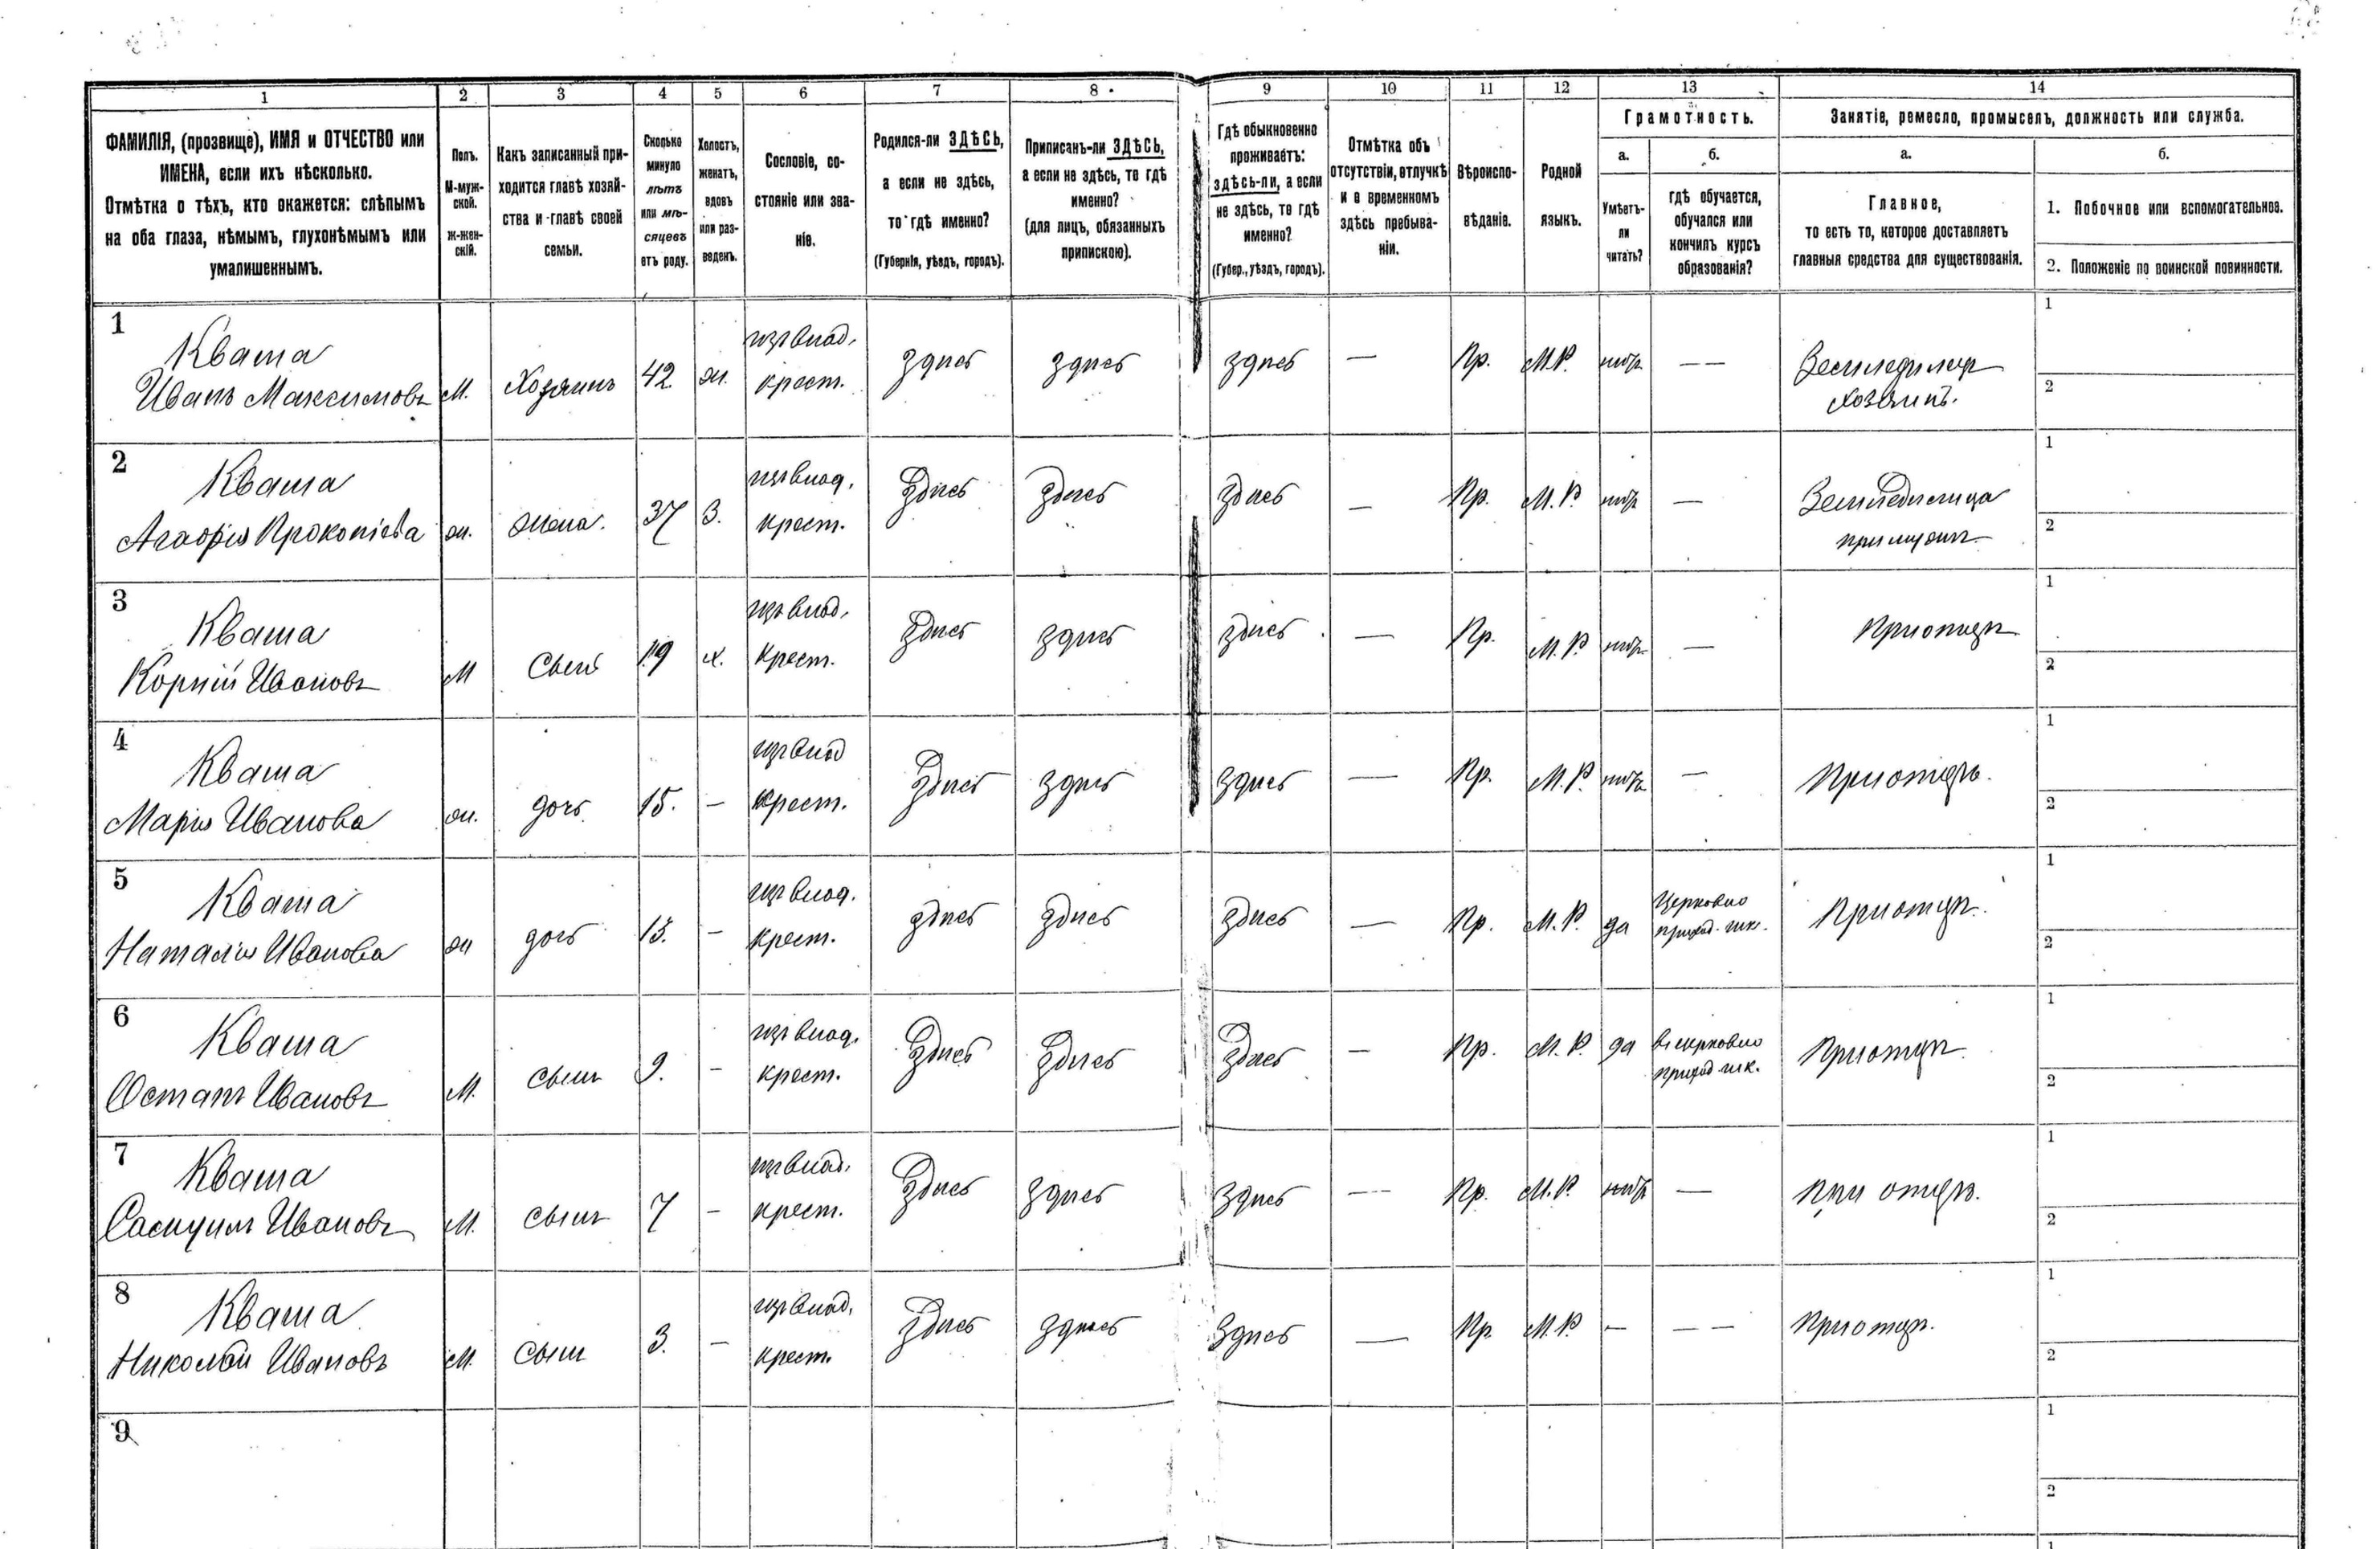 1 2 3 4 5 6 7 8 9 10 11 12 13 14
ФАМИЛІЯ, (прозвище), ИМЯ и ОТЧЕСТВО или
ИМЕНА, если ихъ нѣсколько.
Отмѣтка о тѣхъ, кто окажется: слѣпымъ
на оба глаза, нѣмымъ, глухонѣмымъ или
умалишеннымъ.
Полъ.
М-муж-
ской.
ж-жен-
скій.
Какъ записанный при-
ходится главѣ хозяй-
ства и главѣ своей
семьи.
Сколько
минуло
лѣтъ
или мѣ-
сяцевъ
отъ роду.
Холостъ,
женатъ,
вдовъ
или раз-
веденъ.
Сословіе, со-
стояніе или зва-
ніе.
Родился-ли ЗДѢСЬ,
а если не здѣсь,
то гдѣ именно?
(Губернія, уѣздъ, городъ).
Приписанъ-ли ЗДѢСЬ,
а если не здѣсь, то гдѣ
именно?
(для лицъ, обязанныхъ
припискою).
Гдѣ обыкновенно
проживаетъ:
здѣсь-ли, а если
не здѣсь, то гдѣ
именно?
(Губер., уѣздъ, городъ).
Отмѣтка объ
отсутствіи, отлучкѣ
и о временномъ
здѣсь пребыва-
ніи.
Вѣроиспо-
вѣданіе.
Родной
языкъ.
Грамотность.
а.
Умѣетъ-
ли
читать?
б.
гдѣ обучается,
обучался или
кончилъ курсъ
образованія?
Занятіе, ремесло, промыселъ, должность или служба.
а.
Главное,
то есть то, которое доставляетъ
главныя средства для существованія.
б.
1. Побочное или вспомогательное.
2. Положеніе по воинской повинности.
1 Кваша изъ влад. 1
Иванъ Максимовъ М. Хозяинъ 42 ж. крест. здѣсь здѣсь здѣсь — Пр. М.Р. нѣтъ — — Земледѣлец
хозяинъ. 2
2 Кваша изъ влад. 1
Агафія Прокопіева ж. жена. 37 З. крест. здѣсь здѣсь здѣсь — Пр. М.Р. нѣтъ — Земледѣлица
при мужѣ 2
3 Кваша изъ влад. 1
Корній Ивановъ М Сынъ 19 х. крест. здѣсь здѣсь здѣсь — Пр. М.Р. нѣтъ — При отцѣ 2
4 Кваша изъ влад 1
Марія Иванова ж. дочь 15. — крест. здѣсь здѣсь здѣсь — Пр. М.Р. нѣтъ — При отцѣ. 2
5 Кваша изъ влад. 1
Наталія Иванова ж дочь 13. — крест. здѣсь здѣсь здѣсь — Пр. М.Р. да Церковно При отцѣ.
приход. шк. 2
6 Кваша изъ влад. 1
Остапъ Ивановъ М. сынъ 9. — крест. здѣсь здѣсь здѣсь — Пр. М.Р. да въ церковно При отцѣ
приход шк. 2
7 Кваша изъ влад. 1
Ивановъ М. сынъ 7 — крест. здѣсь здѣсь здѣсь — Пр. М.Р. нѣтъ — При отцѣ. 2
8 Кваша изъ влад. 1
Николай Ивановъ М. Сынъ 3. — крест. здѣсь здѣсь здѣсь — Пр М.Р. — — — При отцѣ. 2
9 1
2
1